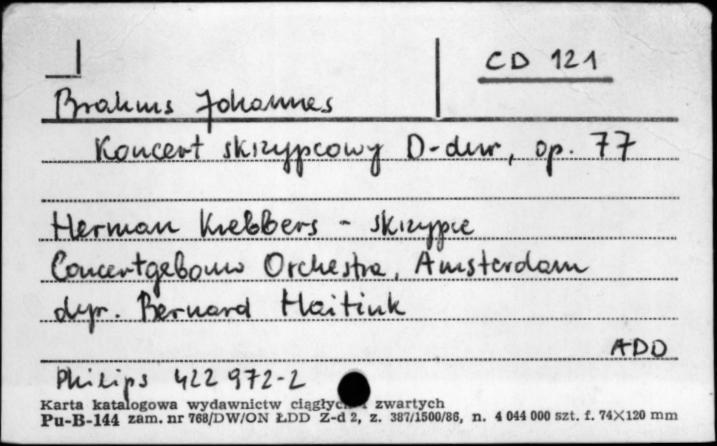 CD 121
Brahms Johannes
Koncert skrzypcowy D-dur, op. 77
Herman Krebbers - skrzypce
Concertgebouw Orchestra, Amsterdam
dyr. Bernard Haitink
ADD
Philips 422 972-2
Karta katalogowa wydawnictw ciągłych i zwartych
Pu-B-144 zam. nr 768/DW/ON ŁDD Z-d 2, z. 387/1500/86, n. 4 044 000 szt. f. 74×120 mm